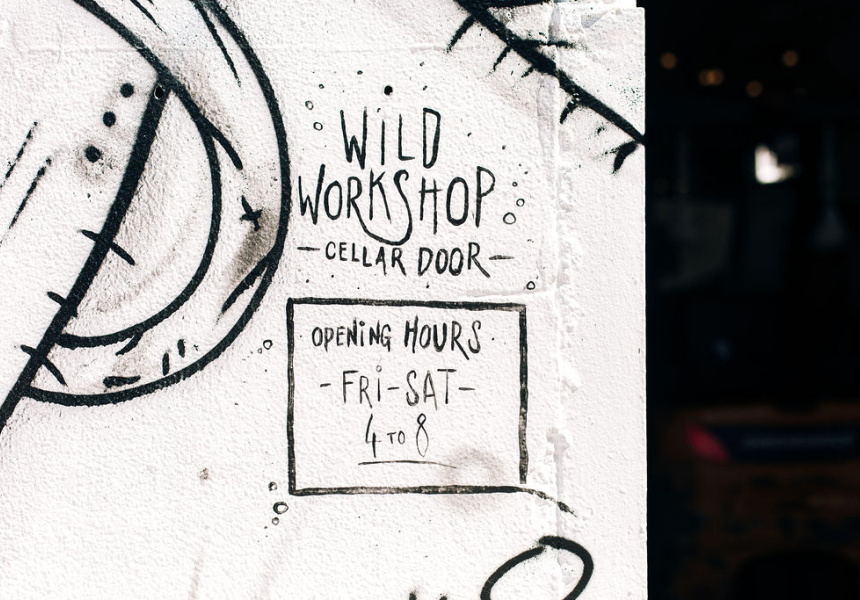 WiLD
WORKSHOP
- CELLAR DOOR -
OPENiNG HOURS
- FRi - SAT -
4 TO 8